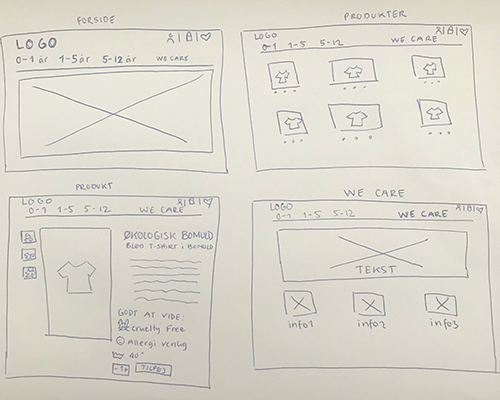 FORSIDE
LOGO
0-1 år 1-5 år 5-12 år WE CARE
PRODUKTER
LOGO
0-1 1-5 5-12 WE CARE
PRODUKT
LOGO
0-1 1-5 5-12 WE CARE
ØKOLOGISK BOMULD
BLØD T-SHIRT I BOMULD
GODT AT VIDE:
Cruelty Free
Allergi venlig
40°
-1+ TILFØJ
WE CARE
LOGO
0-1 1-5 5-12 WE CARE
TEKST
info1 info2 info3